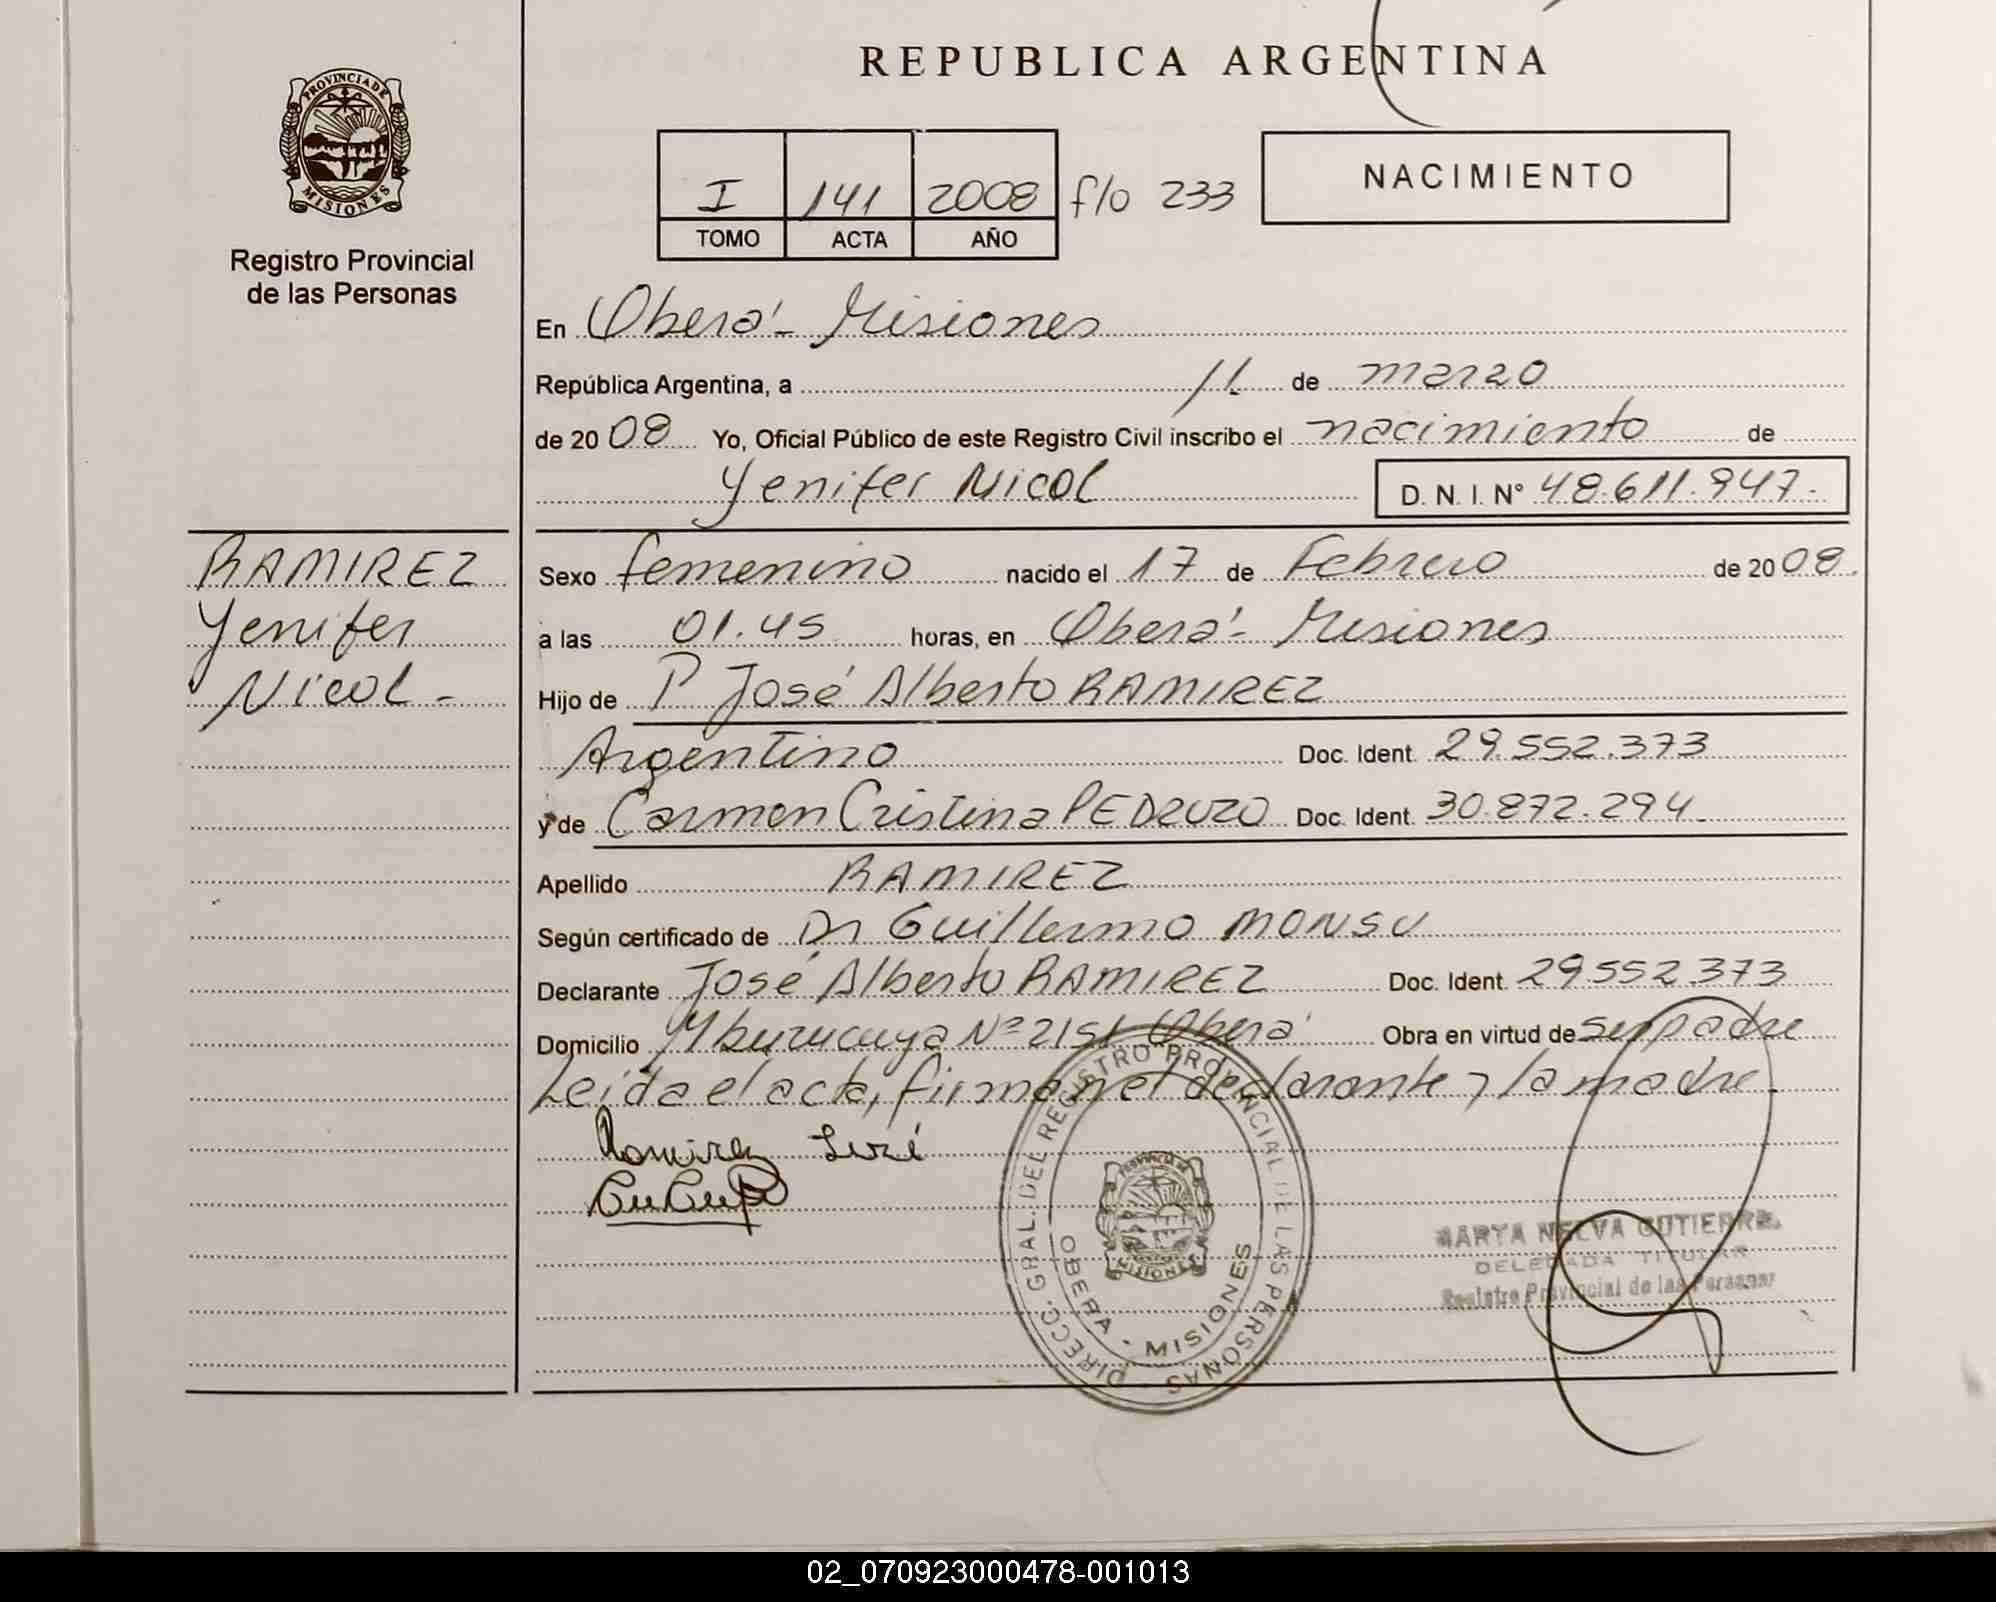 REPUBLICA ARGENTINA
PROVINCIA DE
MISIONES
Registro Provincial
de las Personas
I 141 2008 f/o 233
TOMO ACTA AÑO
NACIMIENTO
En Oberá - Misiones
República Argentina, a 11 de marzo
de 20 08 Yo, Oficial Público de este Registro Civil inscribo el nacimiento de
Yenifer Nicol D. N. I. Nº 48.611.947.
RAMIREZ
Yenifer
Nicol -
Sexo femenino nacido el 17 de Febrero de 20 08.
a las 01.45 horas, en Oberá - Misiones
Hijo de P José Alberto RAMIREZ
Argentino Doc. Ident. 29.552.373
y de Carmen Cristina PEDROZO Doc. Ident. 30.872.294.
Apellido RAMIREZ
Según certificado de Dr Guillermo MONSU
Declarante José Alberto RAMIREZ Doc. Ident. 29.552.373
Domicilio Mburucuya Nº 2151 Oberá Obra en virtud de ser padre
Leída el acta, firman el declarante y la madre.
Ramirez José
DIRECC. GRAL. DEL REGISTRO PROVINCIAL DE LAS PERSONAS
OBERA - MISIONES
PROVINCIA DE
MISIONES
MARTA NELVA GUTIERREZ
DELEGADA TITULAR
Registro Provincial de las Personas
02_070923000478-001013